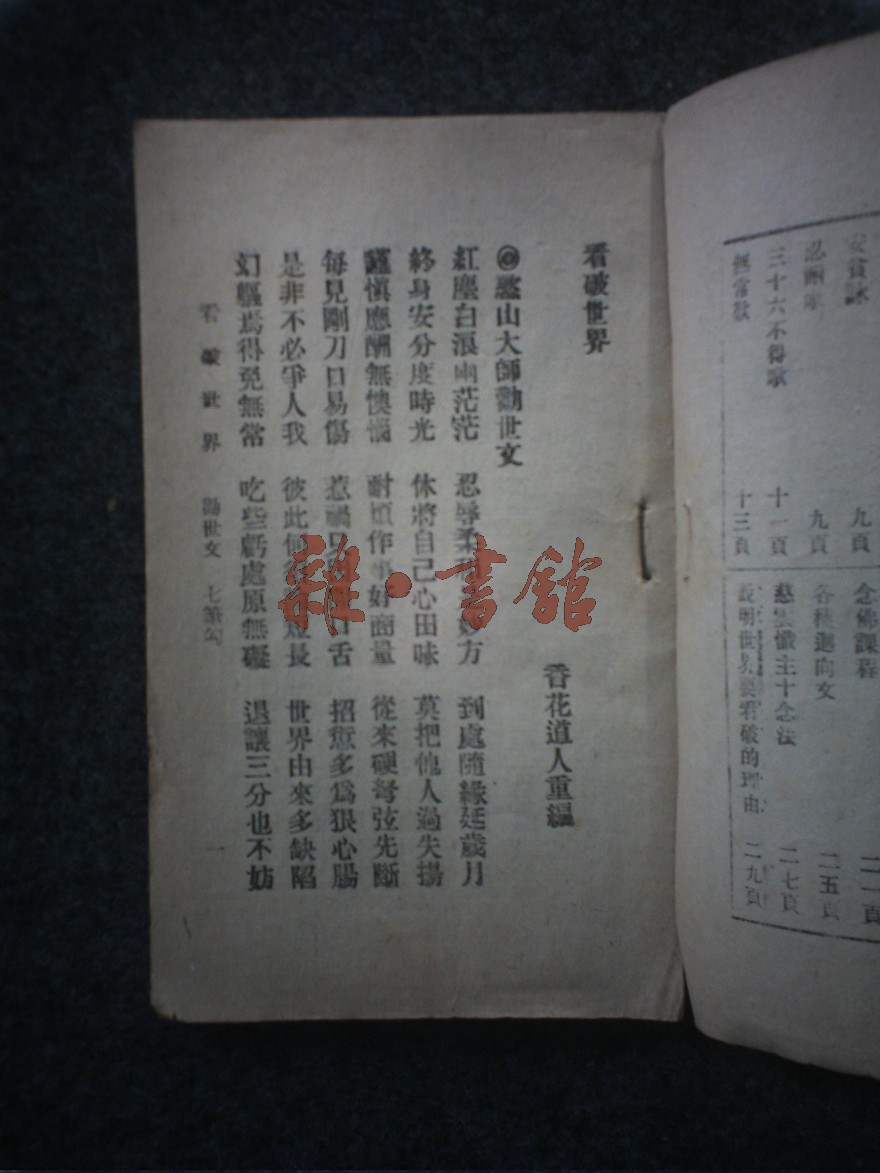 安貧詠 九頁
忍耐歌 九頁
三十六不得歌 十一頁
無常歌 十三頁
念佛課程 二一頁
各種迴向文 二五頁
慈雲懺主十念法 二七頁
說明世界要看破的理由 二九頁
看破世界
香花道人重編
◎憨山大師勸世文
紅塵白浪兩茫茫 忍辱柔和 妙方 到處隨緣延歲月
終身安分度時光 休將自己心田昧 莫把他人過失揚
謹慎應酬無懊惱 耐煩作事好商量 從來硬弩弦先斷
每見剛刀口易傷 惹禍只 口舌 招愆多爲狠心腸
是非不必爭人我 彼此何 短長 世界由來多缺陷
幻軀焉得免無常 吃些虧處原無礙 退讓三分也不妨
看破世界 勸世文 七筆勾 一
雜·書館